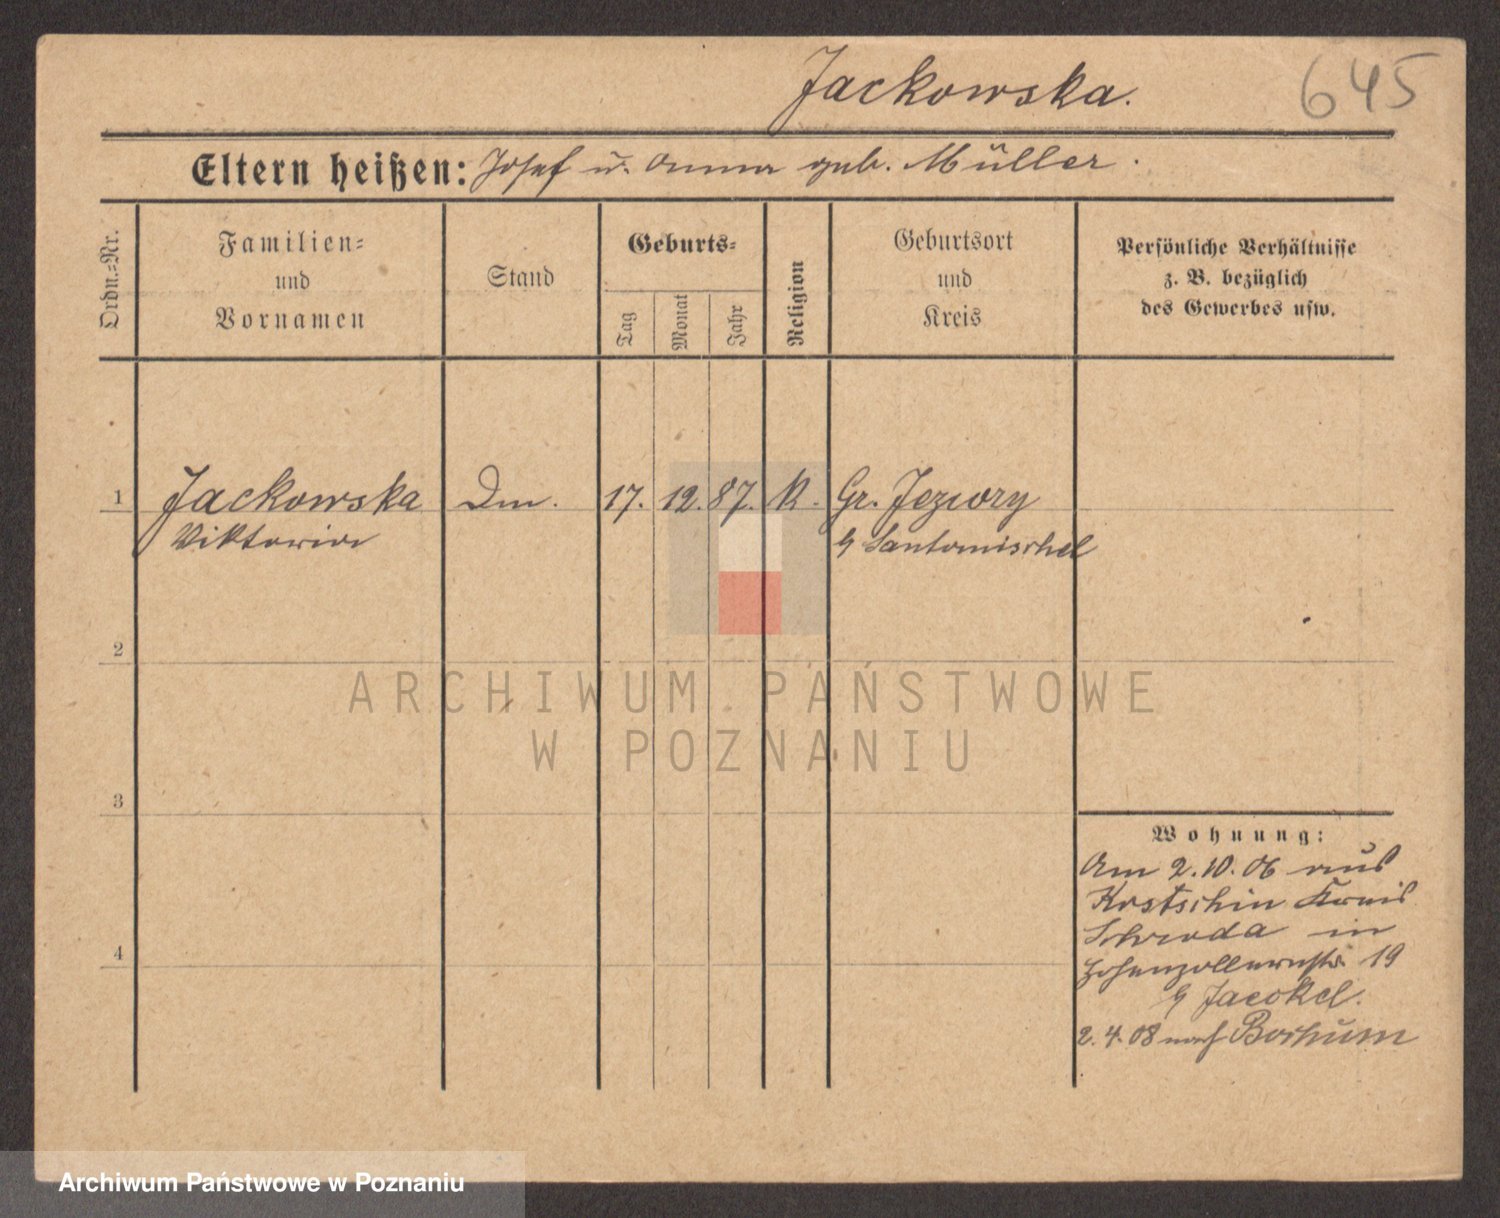 Jackowska.
645
Eltern heißen: Josef u. Anna geb. Müller.
Ordn.=Nr.
Familien=
und
Vornamen
Stand
Geburts=
Tag
Monat
Jahr
Religion
Geburtsort
und
Kreis
Persönliche Verhältnisse
z. B. bezüglich
des Gewerbes usw.
1 Jackowska Dm. 17. 12. 87. K. Gr. Jeziory
Viktoria
Santomischel
2
ARCHIWUM PAŃSTWOWE
W POZNANIU
3
Wohnung:
Am 2.10.06 aus
Kostschin Kreis
Schroda in
4
Hohenzollernstr 19
b Jaeckel.
2.4.08 nach Bochum
Archiwum Państwowe w Poznaniu